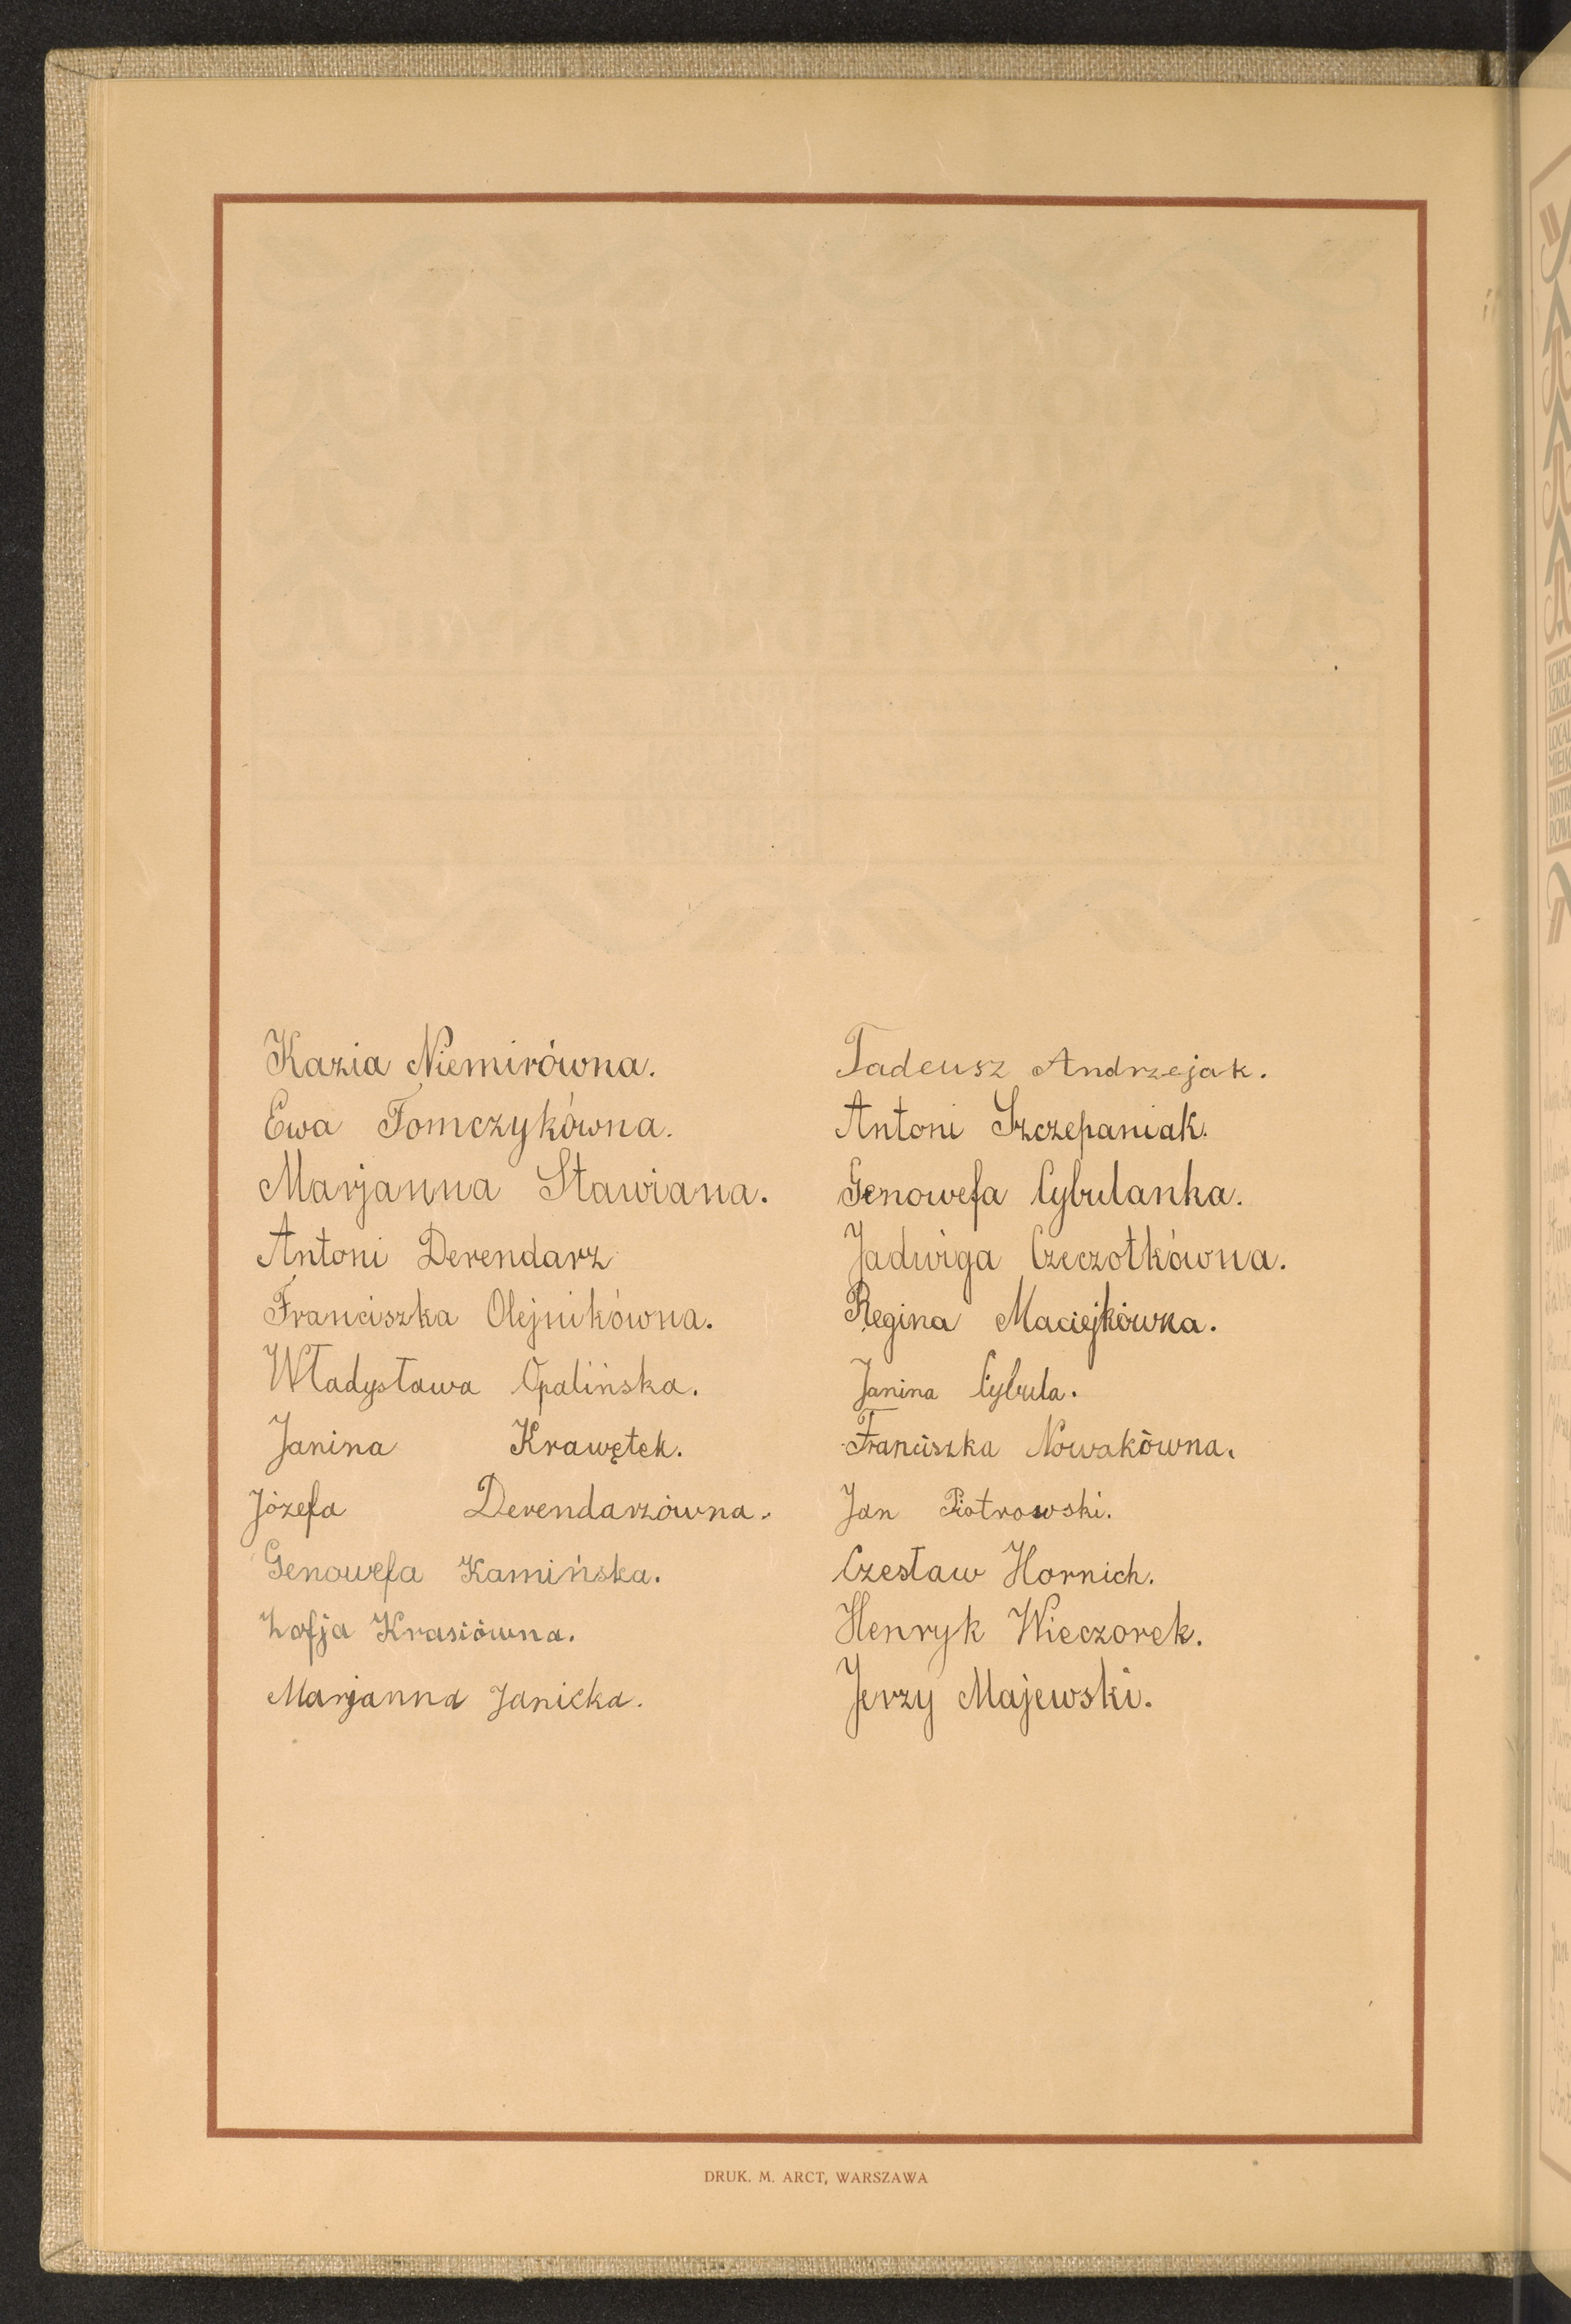 Kazia Niemirówna.
Ewa Tomczykówna.
Marjanna Stawiana.
Antoni Derendarz
Franciszka Olejnikówna.
Władysława Opalińska.
Janina Krawętek.
Józefa Derendarzówna.
Genowefa Kamińska.
Zofja Krasiówna.
Marjanna Janicka.
Tadeusz Andrzejak.
Antoni Szczepaniak.
Genowefa Cybulanka.
Jadwiga Czeczotkówna.
Regina Maciejkówna.
Janina Cybula.
Franciszka Nowakówna.
Jan Piotrowski.
Czesław Hornich.
Henryk Wieczorek.
Jerzy Majewski.
DRUK. M. ARCT, WARSZAWA